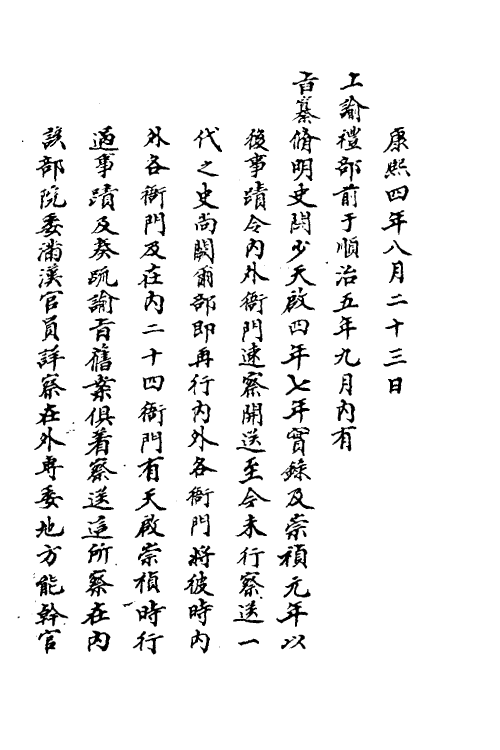 康熙四年八月二十三日
上諭禮部前于順治五年九月內有
旨纂脩明史闕少天啟四年七年實錄及崇禎元年以
後事蹟令內外衙門速察開送至今未行察送一
代之史尚闕爾部即再行內外各衙門將彼時內
外各衙門及在內二十四衙門有天啟崇楨時行
過事蹟及奏疏諭旨舊案俱着察送這所察在內
該部院委滿漢官員詳察在外專委地方能幹官